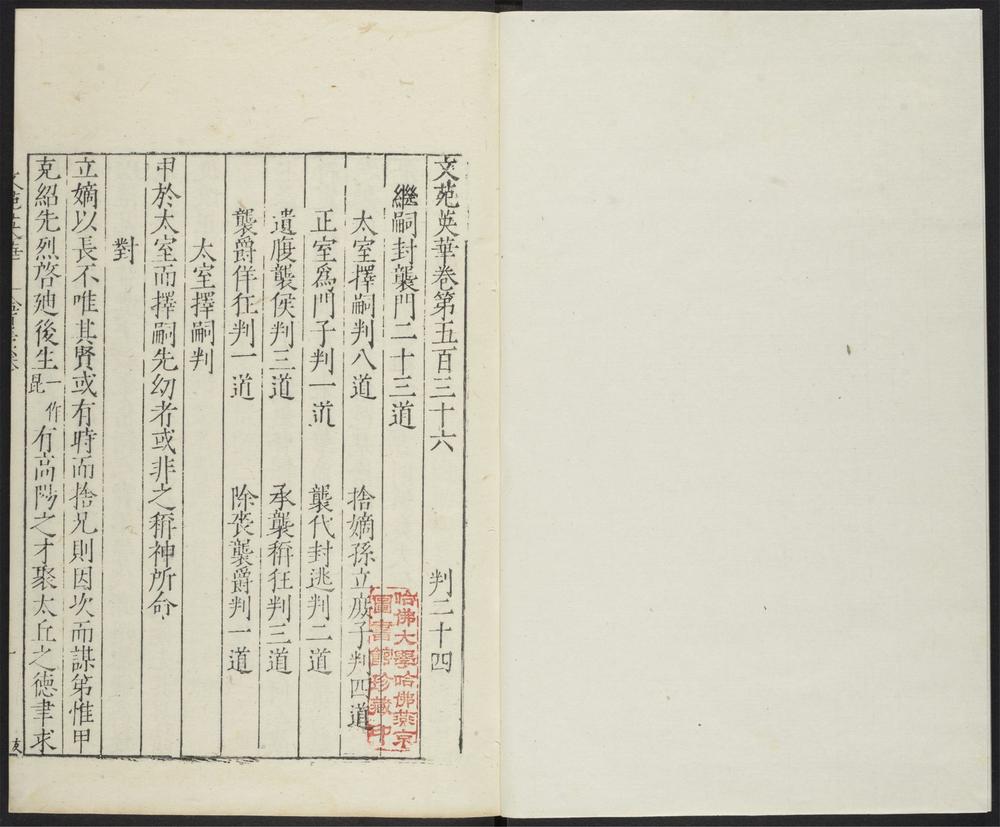 文苑英華卷第五百三十六 判二十四
繼嗣封襲門二十三道
太室擇嗣判八道 捨嫡孫立庶子判四道
正室爲門子判一道 襲代封逃判二道
遺腹襲侯判三道 承襲稱狂判三道
襲爵佯狂判一道 除喪襲爵判一道
太室擇嗣判
甲於太室而擇嗣先幼者或非之稱神所命
對
立嫡以長不唯其賢或有時而捨兄則因次而謀第惟甲
克紹先烈啓迪後生一作昆有高陽之才聚太丘之德聿求
哈佛大學哈佛燕京
圖書館珍藏印